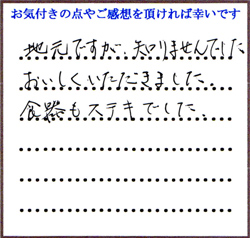 お気付きの点やご感想を頂ければ幸いです
地元ですが、知りませんでした
おいしくいただきました。
食器もステキでした。